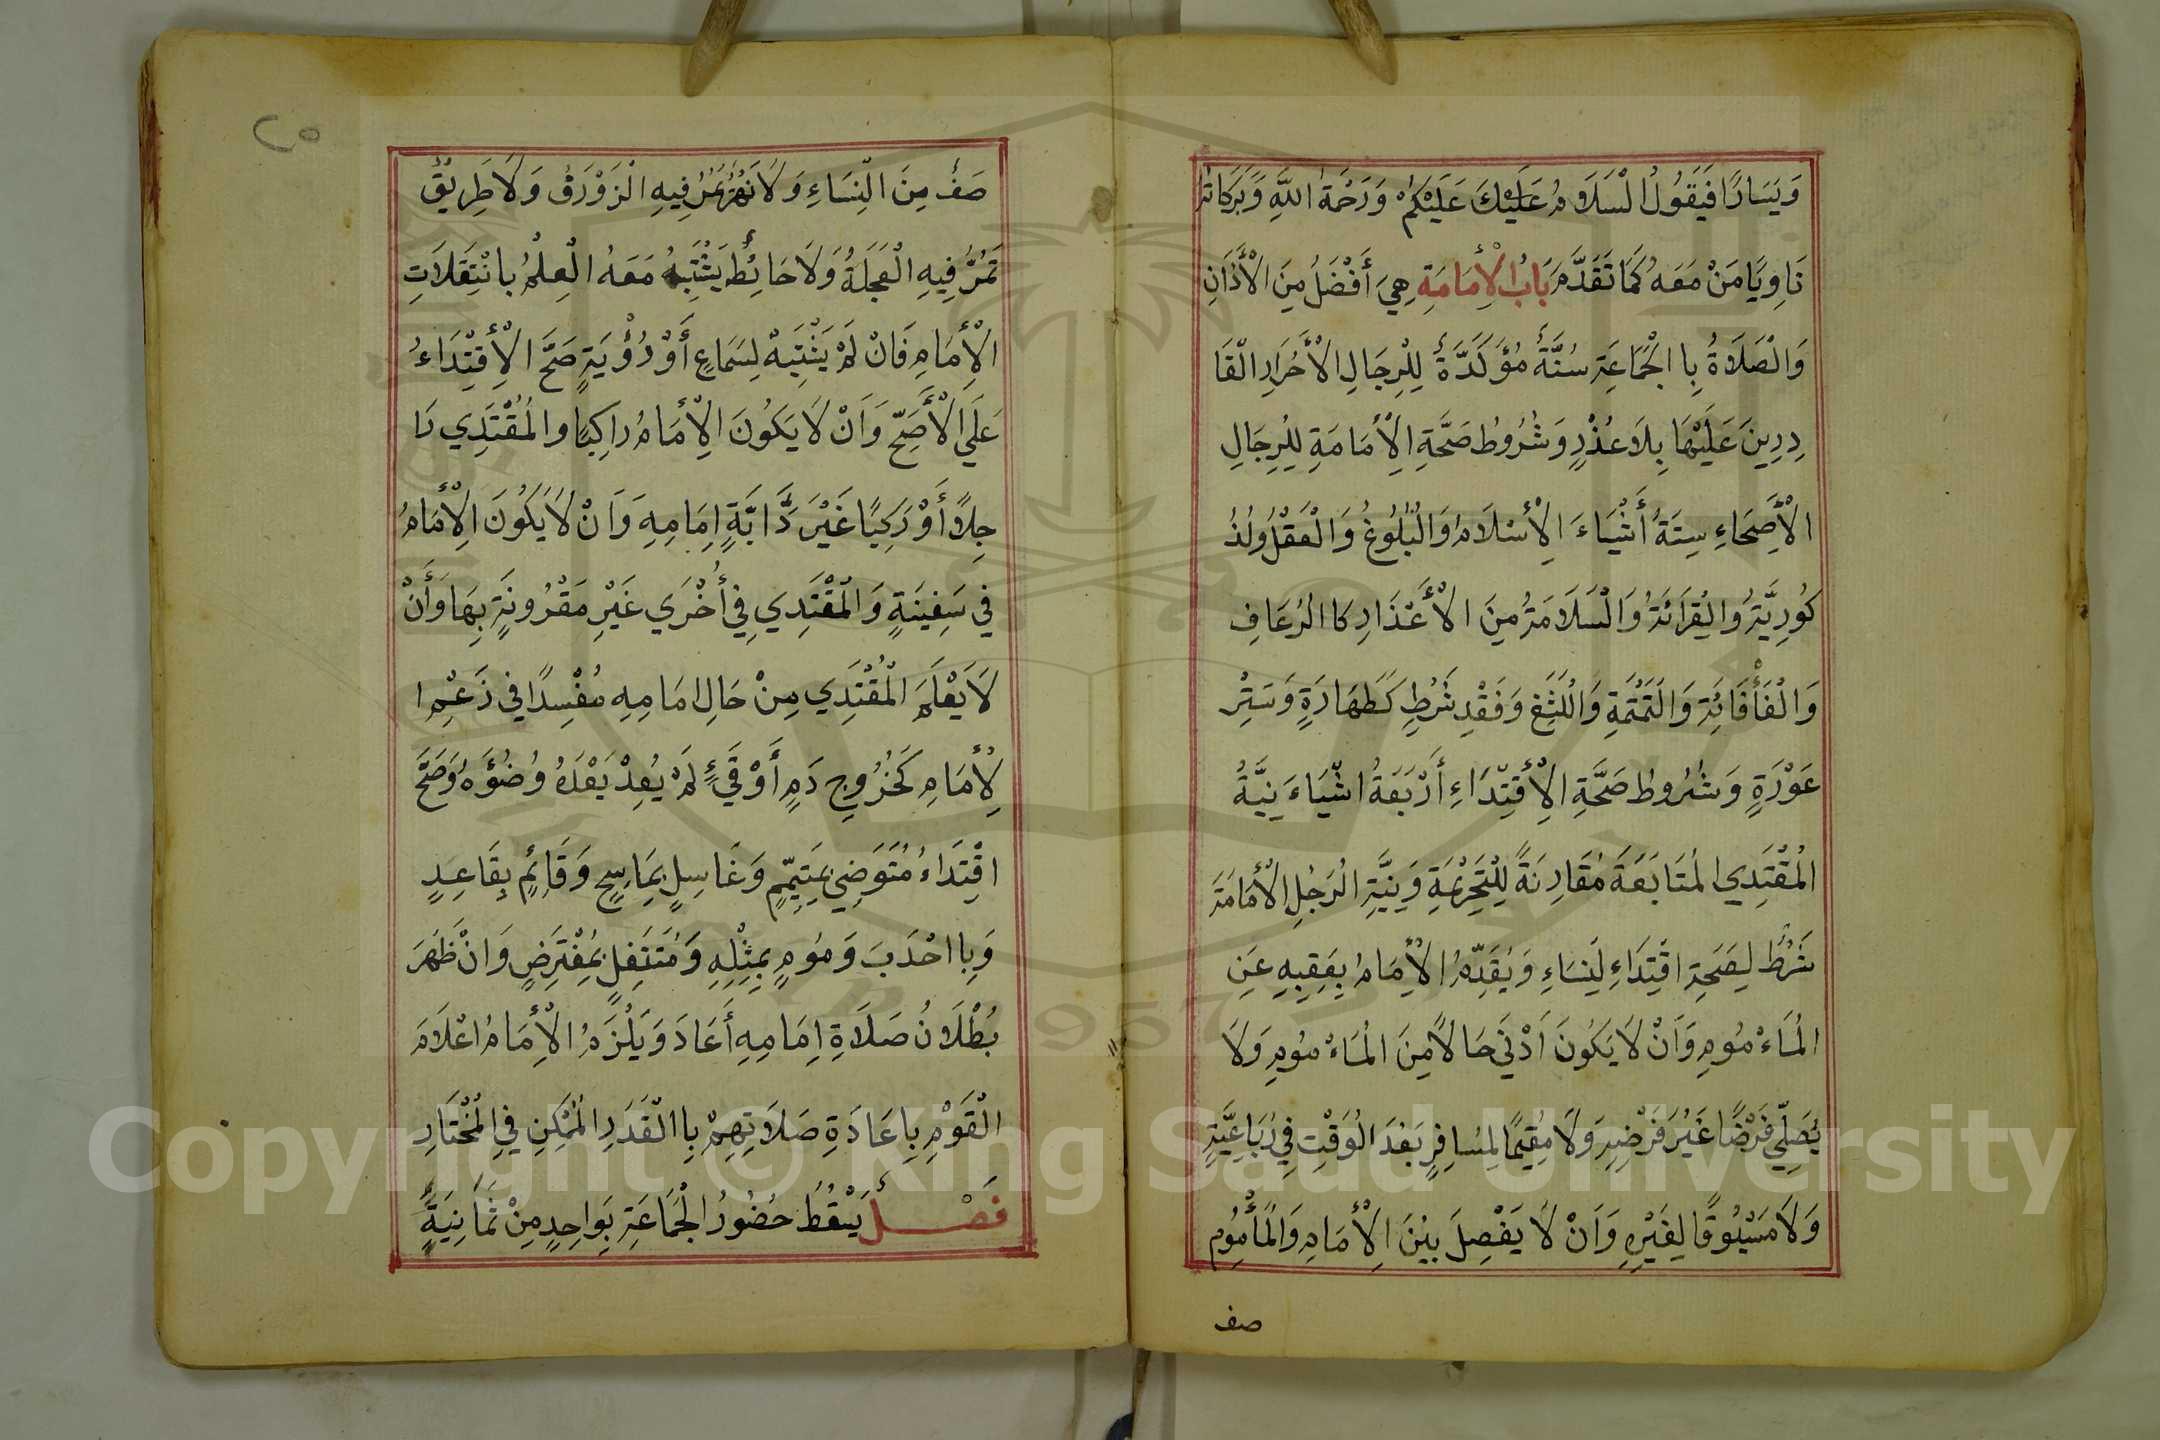 وَيَسَارًا فَيَقُولُ الْسَلَامُ عَلَيْكَ عَلَيْكُمْ وَرَحْمَةُ اللَّهِ وَبَرَكَاتُهُ
نَاوِيًا مَنْ مَعَهُ كَمَا تَقَدَّمَ بَابُ الْأِمَامَةِ هِيَ أَفْضَلُ مِنَ الْأَذَانِ
وَالْصَلَاةُ بِا الْجَمَاعَةِ سُنَّةٌ مُؤَكَدَّةٌ لِلْرِجَالِ الْأَحْرَارِ الْقَا
دِرِينَ عَلَيْهَا بِلَا عُذْرٍ وَشُرُوطُ صَحَّةِ الْأِمَامَةِ لِلْرِجَالِ
الْأَصِحَاءِ سِتَةُ أَشْيَاءَ الْأِسْلَامُ وَالْبُلُوغُ وَالْعَقْلُ وَلْذُ
كُورِيَّةُ وَالْقِرَائَةُ وَالْسَلَامَةُ مِنَ الْأَعْذَارِ كَا الْرُعَافِ
وَالْفَأْفَائَةِ وَالْتَمْتَمَةِ وَالْلَثَغِ وَفَقْدِ شَرْطٍ كَطَهَارَةٍ وَسَتْرِ
عَوْرَةٍ وَشُرُوطُ صَحَّةِ الْأِقْتِدَاءِ أَرْبَعَةُ اشْيَاءَ نِيَّةُ
الْمُقْتَدِي الْمُتَابَعَةَ مُقَارِنَةً لِلْتَحْرِيْمَةِ وَنِيَّةِ الْرَجُلِ الْأِمَامَةَ
شَرْطٌ لِصَحَةِ اقْتِدَاءِ لْنِسَاءِ وَيُقَدِّمُ الْأِمَامُ بِعَقِبِهِ عَنِ
الْمَاءْمُومِ وَاَنْ لَا يَكُونَ اَدْنَى حَالًا مِنَ الْمَاءْمُومِ وَلَا
يُصَلِّي فَرْضًا غَيْرَ فَرْضِهِ وَلَا مُقِيْمًا لِمُسَافِرٍ بَعْدَ الْوَقْتِ فِي رُبَاعِيَّةٍ
وَلَا مَسْبُوقًا لِغَيْرِهِ وَاَنْ لَا يَفْصِلَ بَيْنَ الْأِمَامِ وَالْمَأْمُومِ
صف
٢٥
صَفٌ مِنَ الْنِسَاءِ وَلَا نَهْرٌ يَمُرُ فِيهِ الْزَوْرَقُ وَلَا طَرِيْقٌ
تَمُرُّ فِيهِ الْعَجَلَةُ وَلَا حَائِطٌ يَشْتَبِهُ مَعَهُ الْعِلْمُ بِانْتِقَلَاتِ
الْأِمَامِ فَانْ لَمْ يَشْتَبِهْ لِسَمَاعٍ أَوْ رُؤْيَةٍ صَحَّ الْأِقْتِدَاءُ
عَلَي الْأَصَحِّ وَاَنْ لَا يَكُونَ الْأِمَامُ رَاكِبًا وَالْمُقْتَدِي رَا
جِلًا أَوْ رَكِبًا غَيْرَ دَّابَّةِ اِمَامِهِ وَاَنْ لَا يَكُونَ الْأِمَامُ
فِي سَفِينَةٍ وَالْمُقْتَدِي فِي أُخْرَي غَيْرِ مَقْرُونَةٍ بِهَا وَأَنْ
لَا يَعْلَمَ الْمُقْتَدِي مِنْ حَالِ امَامِهِ مُفْسِدًا فِي زَعْمِ ا
لْأِمَامِ كَخُرُوجِ دَمٍ أَوْ قَيْءٍ لَمْ يُعِدْ بَعْدَهُ وُضُؤَهُ وَصَحَّ
اقْتِدَاءُ مُتَوَضِي بِمَتِيَمِّمٍ وَغَاسِلٍ بِمَاسِحٍ وَقَائِمٍ بِقَاعِدٍ
وَبِا احْدَبَ وَمُومٍ بِمِثْلِهِ وَمُتَنَفِلٍ بِمُفْتَرِضٍ وَانْ ظَهَرَ
بُطْلَانُ صَلَاةِ اِمَامِهِ أَعَادَ وَيَلْزَمُ الْأِمَامُ اعْلَامَ
الْقَوْمِ بِاِعَادَةِ صَلَاتِهِمْ بِا الْقَدَرِ الْمُمْكِنِ فِي الْمُخْتَارِ
فَصْلٌ يَسْقُطُ حُضُورُ الْجَمَاعَةِ بِوَاحِدٍ مِنْ ثَمَانِيَةٍ
Copyright © King Saud University
1957